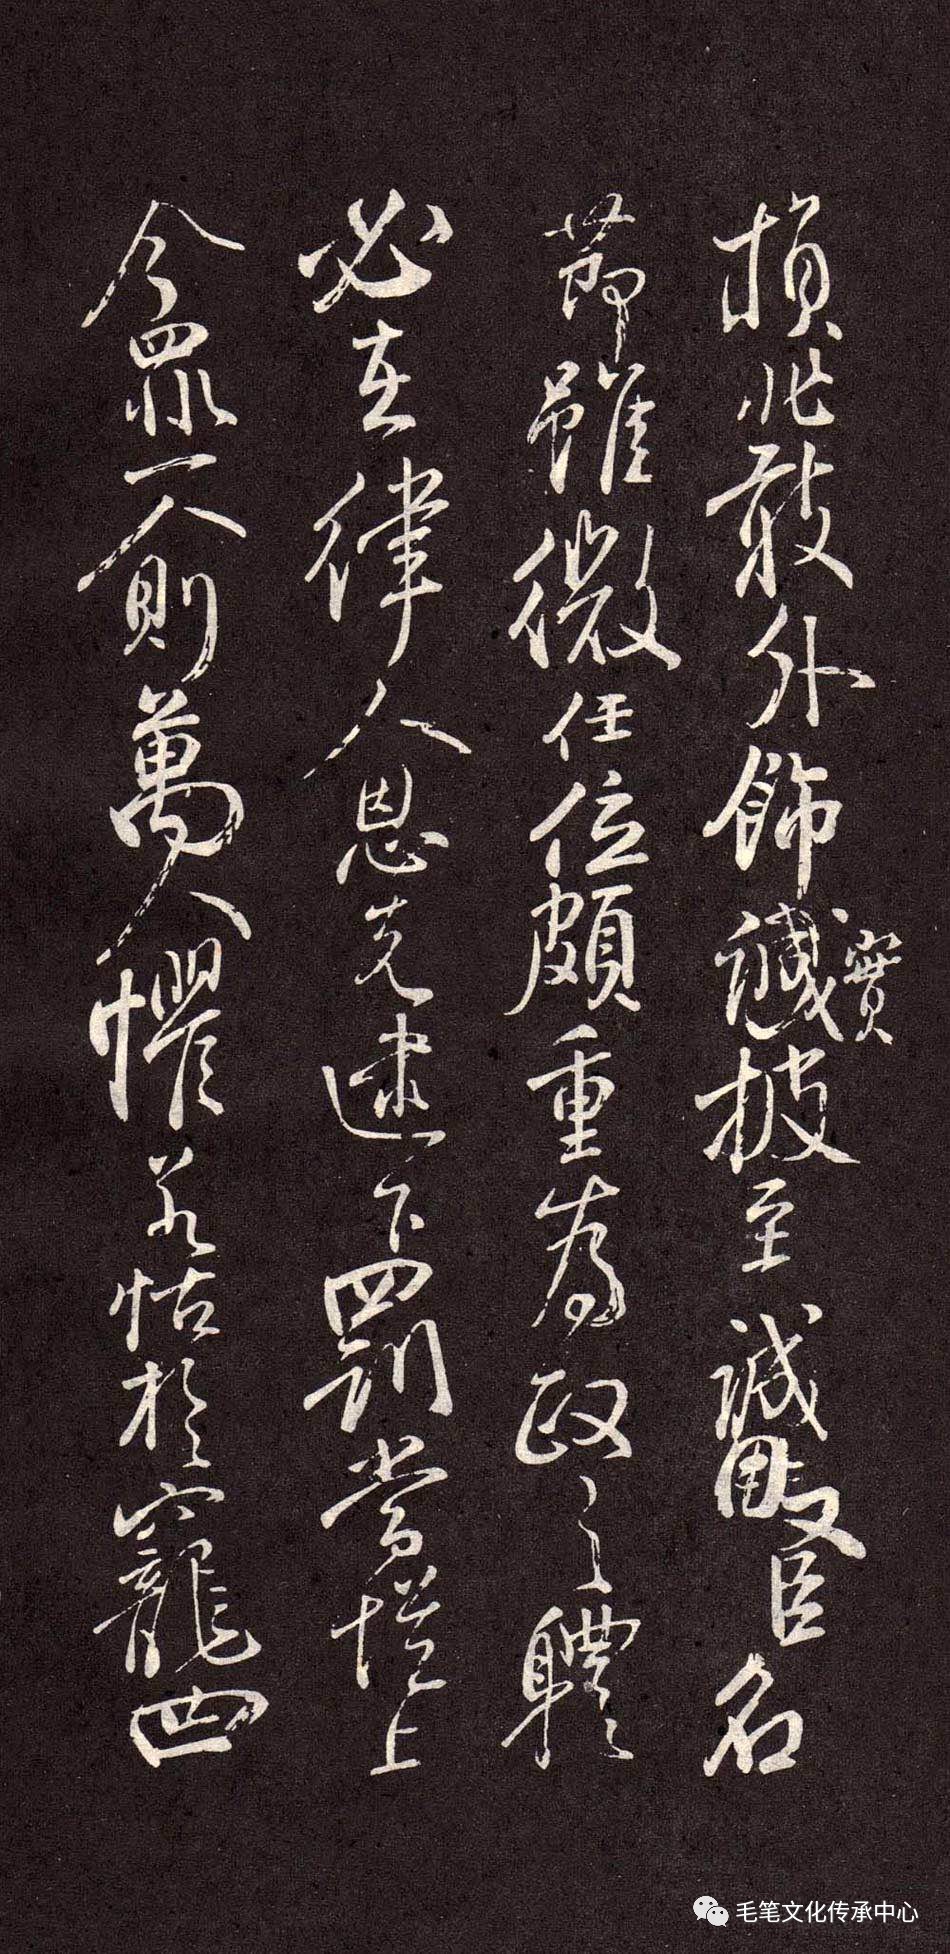 損非敢外飾誠披至誠臣名
實
節雖微任位頗重為政之體
必在律人恩先逮下罰當從上
今罪一人則萬人懼若怙於寵四
毛笔文化传承中心